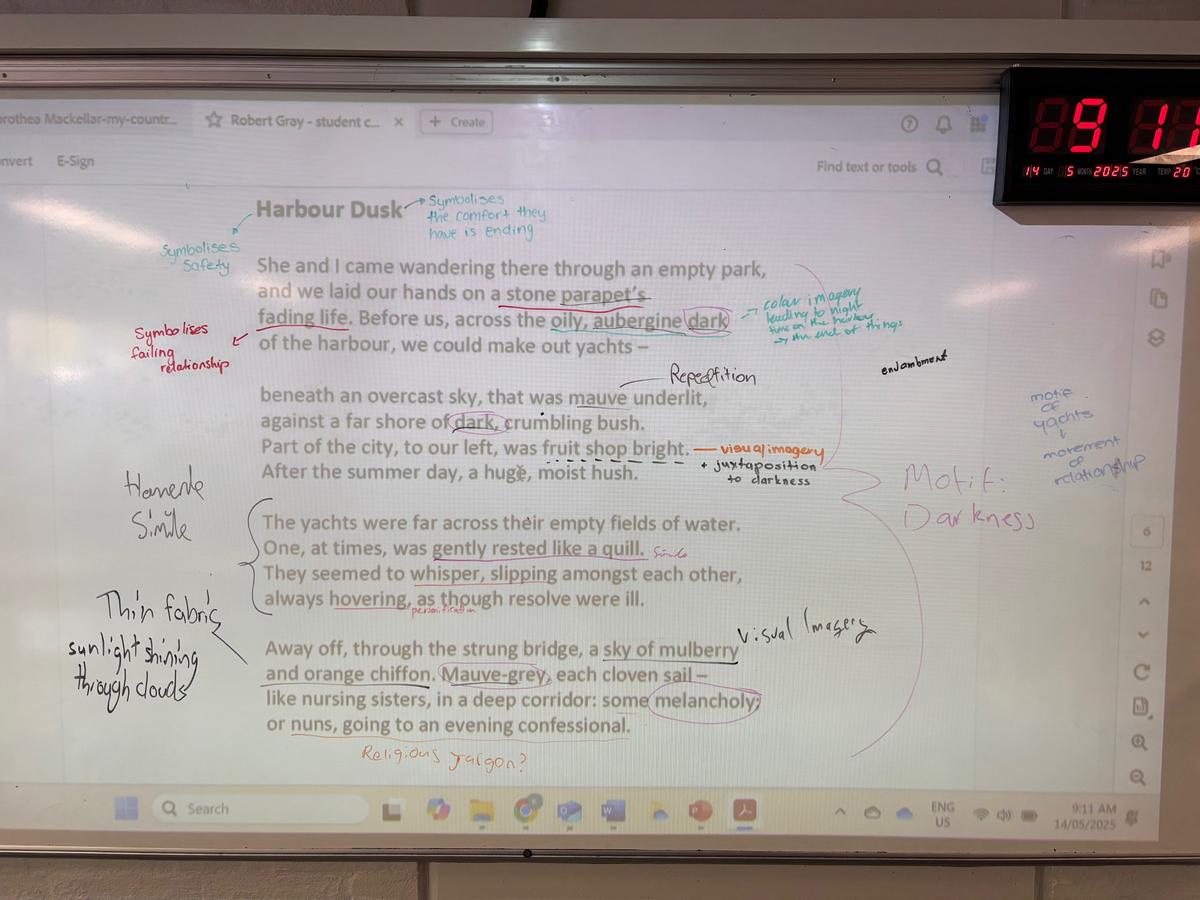 orothea Mackellar-my-countr...
Robert Gray - student c... ×
+ Create
nvert
E-Sign
Find text or tools
9 11
14 DAY 5 MONTH 2025 YEAR TEMP 20 °C
Harbour Dusk
Symbolises
the comfort they
have is ending
Symbolises
Safety
She and I came wandering there through an empty park,
and we laid our hands on a stone parapet's
fading life. Before us, across the oily, aubergine dark
of the harbour, we could make out yachts –
Symbolises
failing
relationship
colour imagery
leading to night
time on the harbour
→ An end of things
Repeatition
enjambment
beneath an overcast sky, that was mauve underlit,
against a far shore of dark, crumbling bush.
Part of the city, to our left, was fruit shop bright.
After the summer day, a huge, moist hush.
visual imagery
+ juxtaposition
to darkness
motif
of
yachts
↓
movement
of
relationship
Motif:
Darkness
Simile
The yachts were far across their empty fields of water.
One, at times, was gently rested like a quill.
Simile
They seemed to whisper, slipping amongst each other,
always hovering, as though resolve were ill.
personification
Thin fabric
sunlight shining
through clouds
Visual Imagery
Away off, through the strung bridge, a sky of mulberry
and orange chiffon. Mauve-grey, each cloven sail –
like nursing sisters, in a deep corridor: some melancholy;
or nuns, going to an evening confessional.
Religious Jargon?
6
12
Search
ENG
US
9:11 AM
14/05/2025